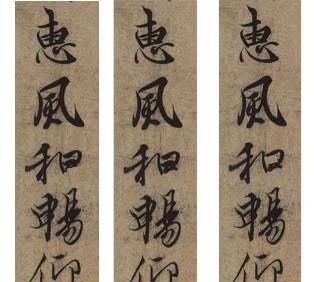 惠風和暢仰
惠風和暢仰
惠風和暢仰